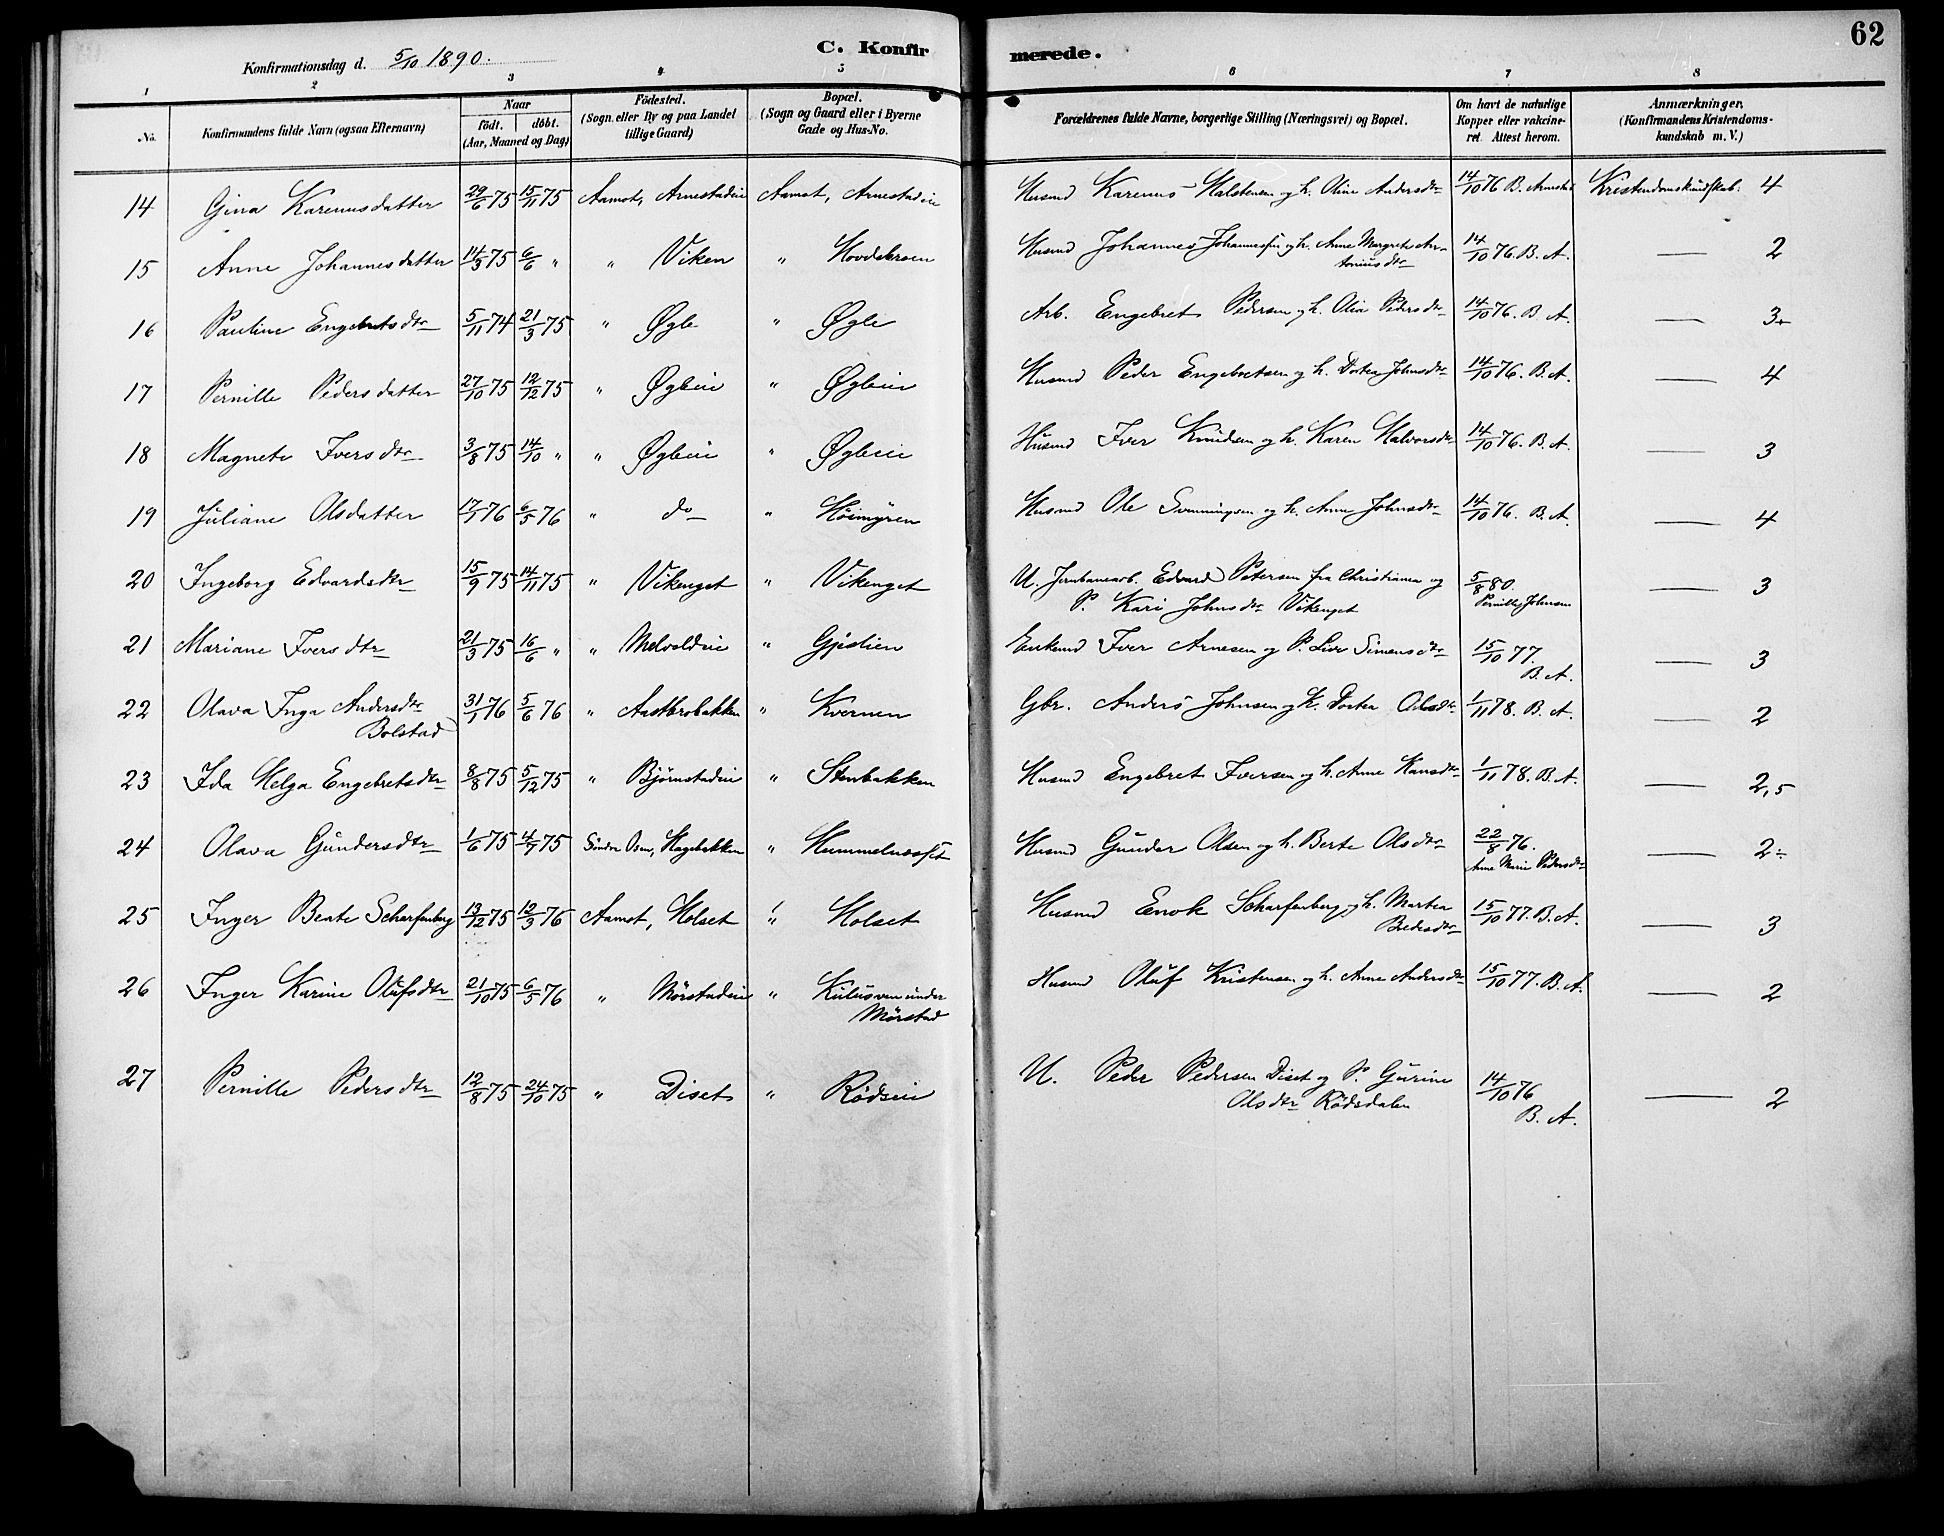 62
C. Konfirmerede.
Konfirmationsdag d. 5/10 1890.
1 2 3 4 5 6 7 8
No. Konfirmandens fulde Navn (ogsaa Efternavn) Naar födt. döbt. (Aar, Maaned og Dag) Födested. (Sogn eller By og paa Landet tillige Gaard) Bopæl. (Sogn og Gaard eller i Byerne Gade og Hus-No. Forældrenes fulde Navne, borgerlige Stilling (Næringsvei) og Bopæl. Om havt de naturlige Kopper eller vakcineret. Attest herom. Anmærkninger. (Konfirmandens Kristendomskundskab m. V.)
14 Gina Karenusdatter 29/6 75 15/11 75 Aamot, Arnestadeie Aamot, Arnestadeie Husmd Karenus Halstensen og h. Oline Andersdtr 14/10 76 B. Arnestad Kristendomskundskab. 4
15 Anne Johannesdatter 14/3 75 6/6 " " Viken " Hovdebroen Husmd Johannes Johannessen og h. Anne Margrete Antoniusdtr 14/10 76. B. A. — 2
16 Pauline Engebretsdtr 5/11 74 21/3 75 " Øgle " Øgle Arb. Engebret Pedersen og h. Olea Pedersdtr 14/10 76. B. A. — 3+
17 Pernille Pedersdatter 27/10 75 12/12 75 " Øgleie " Øgleie Husmd Peder Engebretsen og h. Dortea Johnsdtr 14/10 76. B. A. — 4
18 Magnete Iversdtr 3/8 75 14/10 " " Øgleie " Øgleie Husmd Iver Knudsen og h. Karen Halvorsdtr 14/10 76. B. A. — 3
19 Juliane Olsdatter 17/1 76 6/5 76 " do " Höimyren Husmd Ole Svenningsen og h. Anne Johnsdtr 14/10 76. B. A. — 4
20 Ingeborg Edvardsdtr 15/9 75 14/11 75 " Vikenget " Vikenget U. Jernbanearb. Edvard Petersen fra Christiania og P. Kari Johnsdtr Vikenget 5/8 80. Pernille Johnsen — 3
21 Mariane Iversdtr 21/3 75 16/6 " " Melvoldeie " Gjeslien Enkemd Iver Arnesen og P. Live Simensdtr 15/10 77. B. A. — 3
22 Olava Inga Andersdtr Bolstad 31/1 76 5/6 76 " Aastbrobakken " Kvernen Gbr. Anders Johnsen og K. Dortea Olsdtr 1/11 78. B. A. — 2
23 Ida Helga Engebretsdtr 8/8 75 5/12 75 " Bjørnstadeie " Stenbakken Husmd Engebret Iversen og h. Anne Hansdtr 1/11 78. B. A. — 2,5
24 Olava Gundersdtr 1/6 75 4/7 75 Søndre Osen, Hagebakken " Husmd Gunder Olsen og h. Berte Olsdtr 22/8 76. Anne Marie Pedersdtr — 2÷
25 Inger Beate Scharfenberg 13/12 75 12/3 76 Aamot, Holset " Holset Husmd Enok Scharfenberg og h. Martea Bredesdtr 15/10 77. B. A. — 3
26 Inger Karine Olufsdtr 21/10 75 6/5 76 " Mørstadeie " Kulusveen under Mørstad Husmd Oluf Kristensen og h. Anne Andersdtr 15/10 77. B. A. — 2
27 Pernille Pedersdtr 12/8 75 24/10 75 " Diset " Rödseie U. Peder Pedersen Diset og P. Gurine Olsdtr Rödsdalen 14/10 76 B. A. — 2